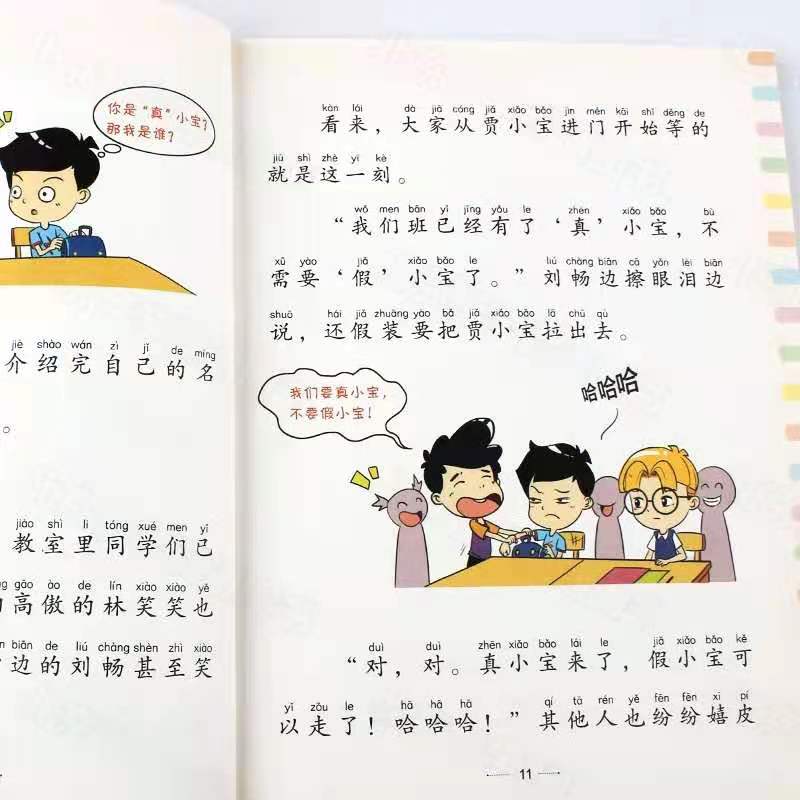 你是“真”小宝？
那我是谁？
jiè shào wán zì jǐ de míng
介绍完自己的名
。
jiào shì li tóng xué men yǐ
教室里同学们已
gāo ào de lín xiào xiào yě
高傲的林笑笑也
biān de liú chàng shèn zhì xiào
边的刘畅甚至笑
kàn lái dà jiā cóng jiǎ xiǎo bǎo jìn mén kāi shǐ děng de
看来，大家从贾小宝进门开始等的
jiù shì zhè yí kè
就是这一刻。
wǒ men bān yǐ jīng yǒu le zhēn xiǎo bǎo bù
“我们班已经有了‘真’小宝，不
xū yào jiǎ xiǎo bǎo le liú chàng biān cā yǎn lèi biān
需要‘假’小宝了。”刘畅边擦眼泪边
shuō hái jiǎ zhuāng yào bǎ jiǎ xiǎo bǎo lā chū qù
说，还假装要把贾小宝拉出去。
我们要真小宝，
不要假小宝！
哈哈哈
duì duì zhēn xiǎo bǎo lái le jiǎ xiǎo bǎo kě
“对，对。真小宝来了，假小宝可
yǐ zǒu le hā hā hā qí tā rén yě fēn fēn xī pí
以走了！哈哈哈！”其他人也纷纷嬉皮
11